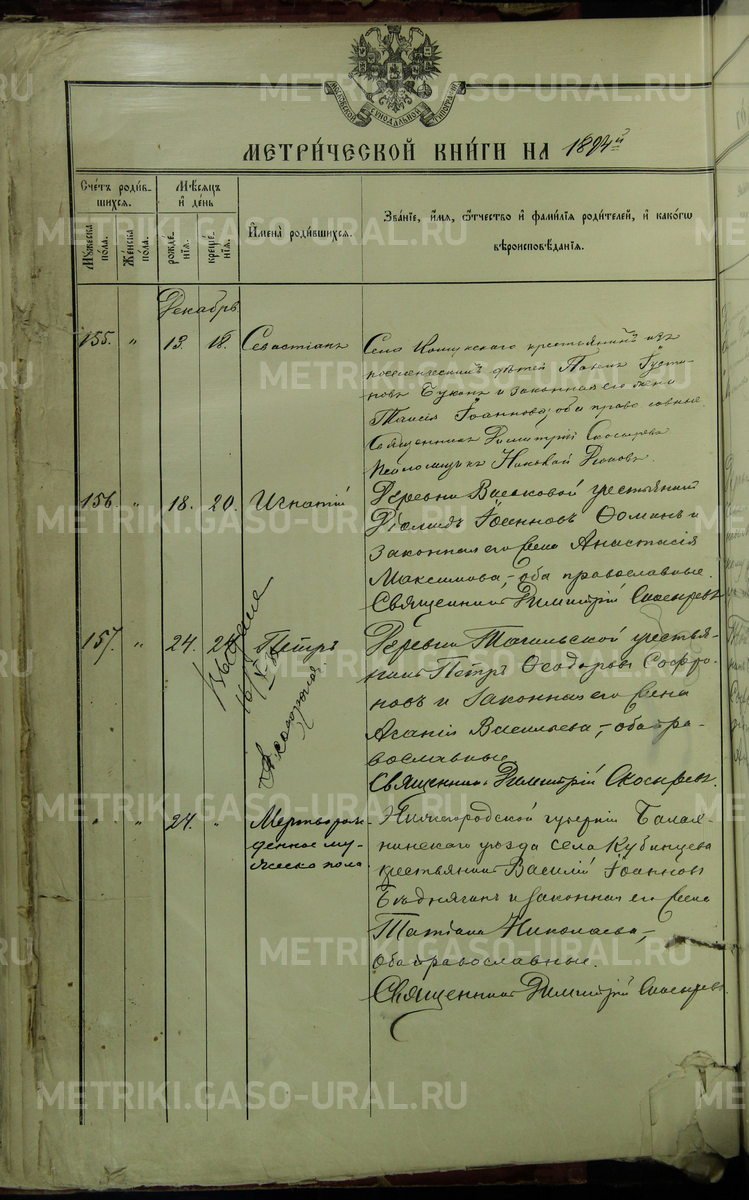 МОСКОВСКОЙ СИНОДАЛЬНОЙ ТИПОГРАФІИ
МЕТРИ́ЧЕСКОЙ КНИ́ГИ НА 1894й
Сче́тъ роди́вшихся.
Мѣ́сяцъ и҆ де́нь
Мꙋ́жеска по́ла.
Же́нска по́ла.
рожде́нїѧ.
креще́нїѧ.
И҆мена̀ роди́вшихся.
Зва́нїе, и҆́мѧ, ѻ҆́тчество и҆ фами́лїѧ роди́телей, и҆ како́гѡ вѣроисповѣ́данїѧ.
Декабрь
155. " 13. 18. Севастіанъ
Села крестьянинъ изъ
поселенческихъ дѣтей
и законная его жена
Таисія Іоаннова, оба православные
Священникъ Димитрій Скосыревъ
Псаломщикъ Николай
156. " 18. 20. Игнатій
Деревни Васьковой крестьянинъ
Діомидъ Іоанновъ Ѳоминъ и
законная его жена Анастасія
Максимова, - оба православные.
Священникъ Димитрій Скосыревъ
157. " 24. 24. Петръ
Деревни Тагильской крестья-
нинъ Петръ Ѳеодоровъ Софро-
новъ и законная его жена
Агапія Васильева, - оба пра-
вославные
Священникъ Димитрій Скосыревъ.
16/X
" 24. " Мертворож-
денное му-
жеско пола
Нижегородской губерніи Балах-
нинскаго уѣзда села Кубинцева
крестьянинъ Василій Іоанновъ
и законная его жена
Татіана Николаева, -
оба православные.
Священникъ Димитрій Скосыревъ
METRIKI.GASO-URAL.RU